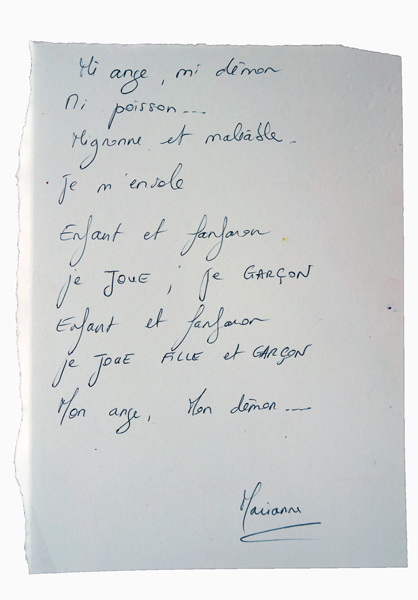 Mi ange, mi démon
Ni poisson...
Mignonne et maléable.
Je m'envole
Enfant et fanfaron
je JOUE ; je GARÇON
Enfant et fanfaron
je JOUE FILLE et GARÇON
Mon ange, Mon démon...
Marianne